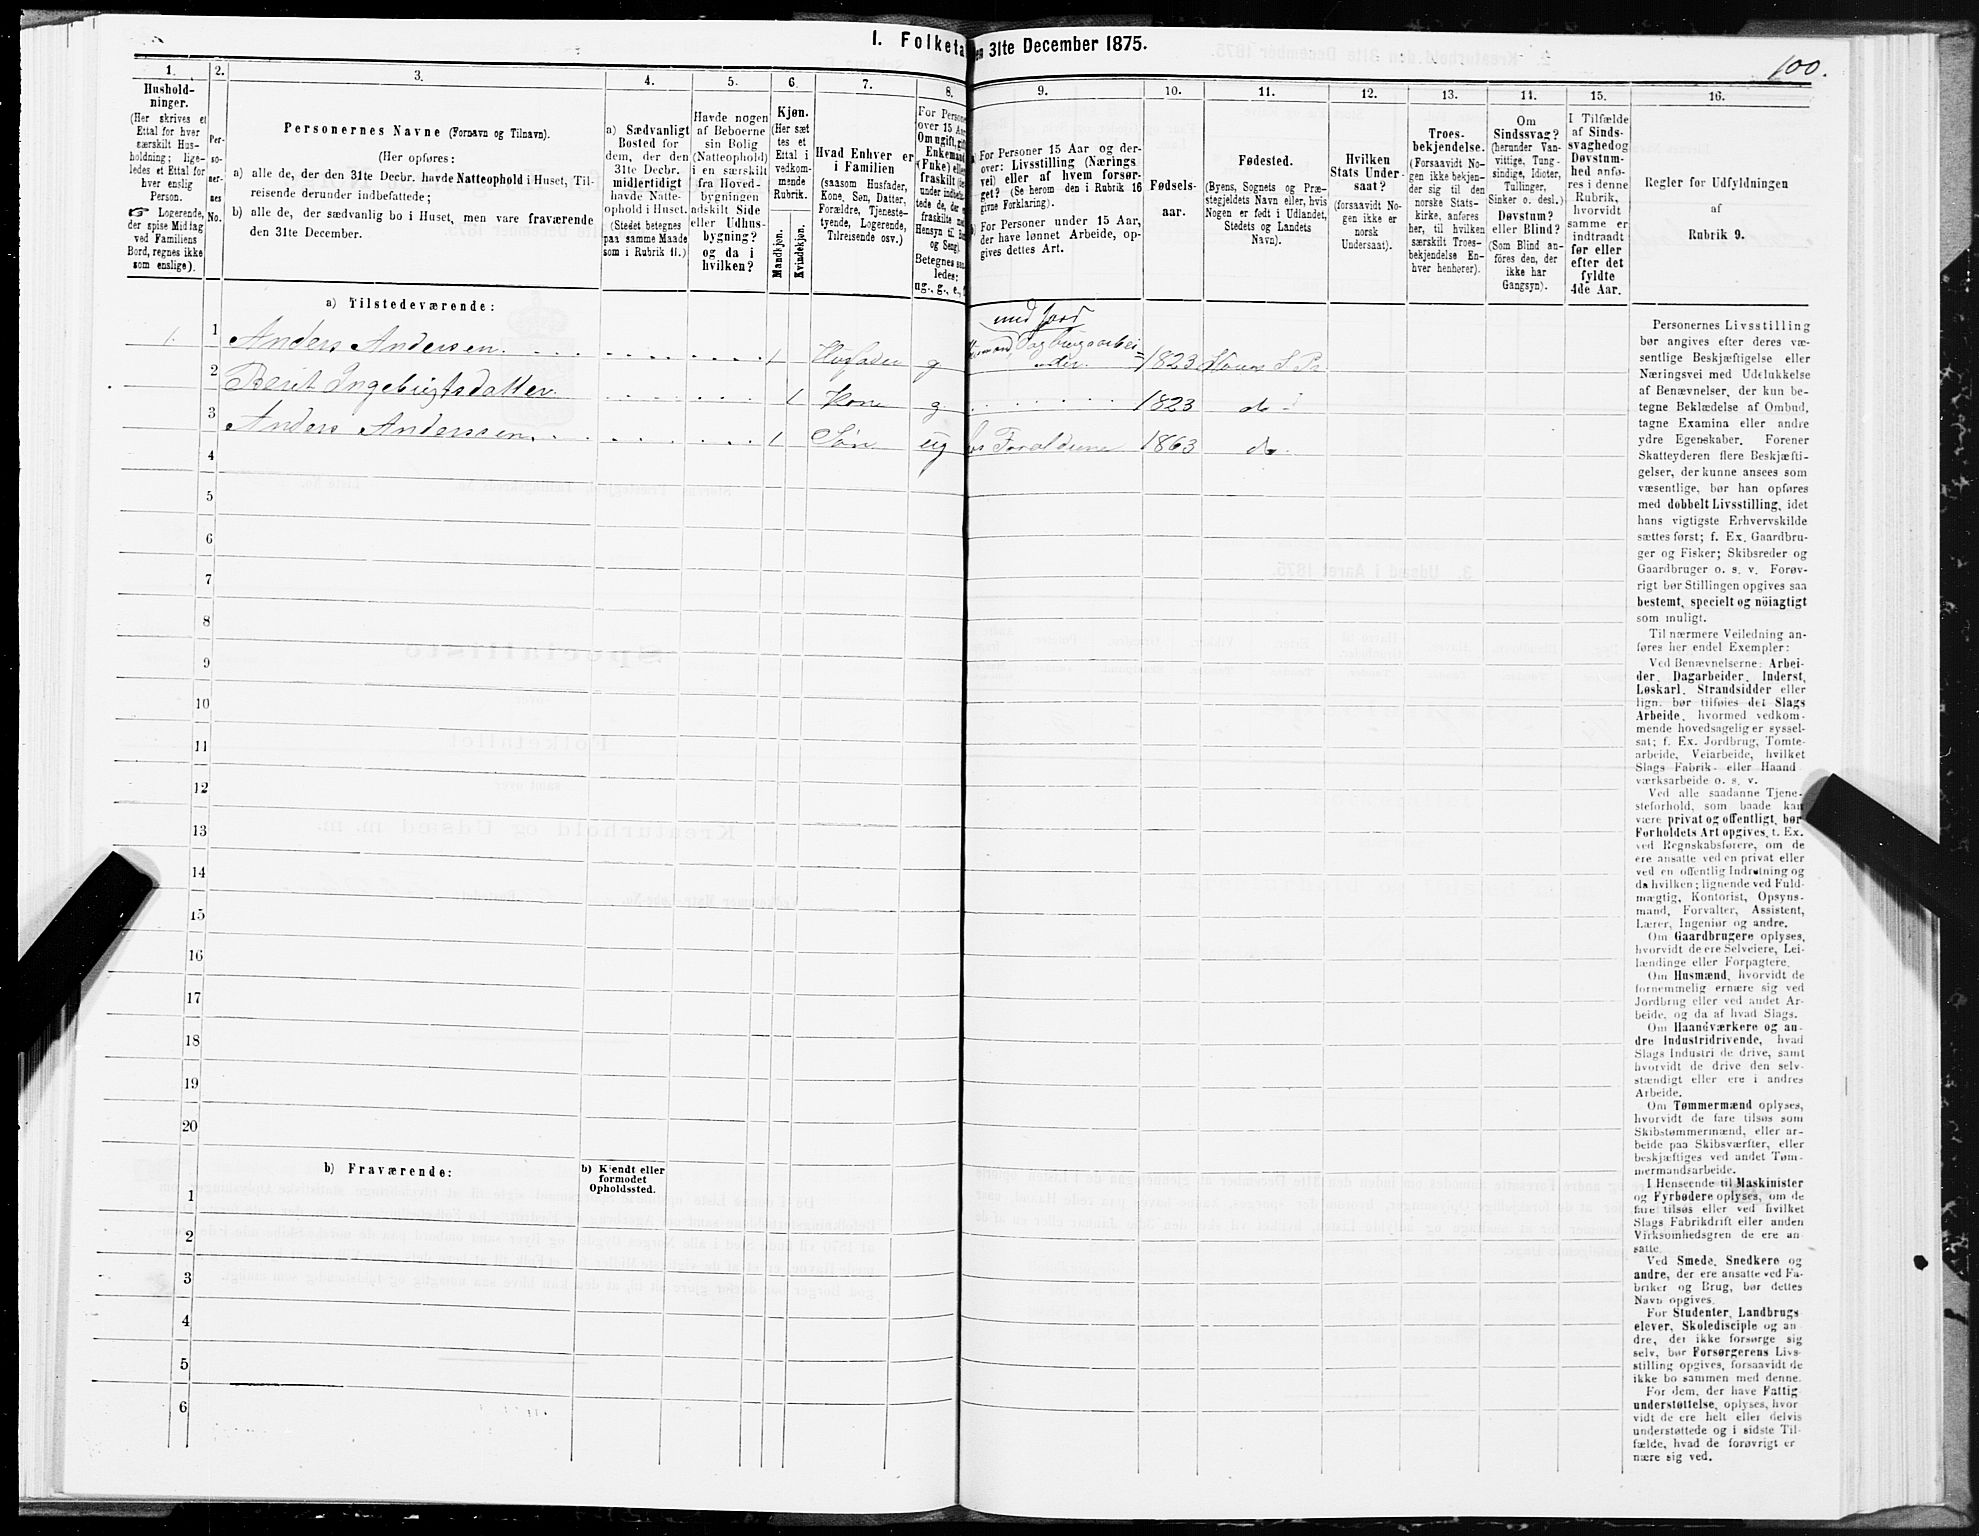 I. Folketa en 31te December 1875.
100.
1.
Hushold-
ninger.
(Her skrives et
Ettal for hver
særskilt Hus-
holdning; lige-
ledes et Ettal for
hver enslig
Person.
☞ Logerende,
der spise Middag
ved Familiens
Bord, regnes ikke
som enslige).
2.
Per-
so-
ner-
nes
No.
3.
Personernes Navne (Fornavn og Tilnavn).
(Her opføres:
a) alle de, der den 31te Decbr. havde Natteophold i Huset, Til-
reisende derunder indbefattede;
b) alle de, der sædvanlig bo i Huset, men vare fraværende
den 31te December.
4.
a) Sædvanligt
Bosted for
dem, der den
31te Decbr.
midlertidigt
havde Natte-
ophold i Huset.
(Stedet betegnes
paa samme Maade
som i Rubrik 11.)
5.
Havde nogen
af Beboerne
sin Bolig
(Natteophold)
i en særskilt
fra Hoved-
bygningen
adskilt Side
eller Udhus-
bygning?
og da i
hvilken?
6.
Kjøn.
(Her sæt-
tes et
Ettal i
vedkom-
mende
Rubrik.
Mandkjøn.
Kvindekjøn.
7.
Hvad Enhver er
i Familien
(saasom Husfader,
Kone, Søn, Datter,
Forældre, Tjeneste-
tyende, Logerende,
Tilreisende osv.)
8.
For Persone
over 15 Aar
Om ugift, gift
Enkemand
(Fuke) eller
fraskilt
under indbefat-
tede de, der e
fraskilte
Hensyn til Bo
og Seng).
Betegnes saa-
ledes:
ug., g., e., f
9.
a) For Personer 15 Aar og der-
over: Livsstilling (Nærings
vei) eller af hvem forsør-
get? (Se herom den i Rubrik 16
givne Forklaring).
b) For Personer under 15 Aar,
der have lønnet Arbeide, op-
gives dettes Art.
10.
Fødsels-
aar.
11.
Fødested.
(Byens, Sognets og Præ-
stegjeldets Navn eller, hvis
Nogen er født i Udlandet,
Stedets og Landets
Navn).
12.
Hvilken
Stats Under-
saat?
(forsaavidt No-
gen ikke er
norsk
Undersaat).
13.
Troes-
bekjendelse.
(Forsaavidt No-
gen ikke bekjen-
der sig til den
norske Stats-
kirke, anføres
her, til hvilken
særskilt Troes-
bekjendelse En-
hver henhører).
14.
Om
Sindssvag?
(herunder Van-
vittige, Tung-
sindige, Idioter,
Tullinger,
Sinker o. desl.)
Døvstum?
eller Blind?
(Som Blind an-
føres den, der
ikke har
Gangsyn).
15.
I Tilfælde
af Sinds-
svaghed og
Døvstum-
hed anfø-
res i denne
Rubrik,
hvorvidt
samme er
indtraadt
før eller
efter det
fyldte
4de Aar.
16.
Regler for Udfyldningen
af
Rubrik 9.
a) Tilstedeværende:
med Jord
1. 1 Anders Andersen. 1 Husfader g Husmand, Dagbrugsarbei=
der. 1823
2 Berit Ingebrigtsdatter 1 Kone g 1823 do
3 Anders Anderssen 1 Søn ug hos Forældrene 1863 do.
4
5
6
7
8
9
10
11
12
13
14
15
16
17
18
19
20
b) Fraværende:
b) Kjendt eller
formodet
Opholdssted.
1
2
3
4
5
6
Personernes Livsstilling
bør angives efter deres væ-
sentlige Beskjæftigelse eller
Næringsvei med Udelukkelse
af Benævnelser, der kun be-
tegne Beklædelse af Ombud,
tagne Examina eller andre
ydre Egenskaber. Forener
Skatteyderen flere Beskjæfti-
gelser, der kunne ansees som
væsentlige, bør han opføres
med dobbelt Livsstilling, idet
hans vigtigste Erhvervskilde
sættes først; f. Ex. Gaardbru-
ger og Fisker; Skibsreder og
Gaardbruger o. s. v. Forøv-
rigt bør Stillingen opgives saa
bestemt, specielt og nøiagtigt
som muligt.
Til nærmere Veiledning an-
føres her endel Exempler:
Ved Benævnelserne: Arbei-
der, Dagarbeider, Inderst,
Løskarl, Strandsidder eller
lign. bør tilføies det Slags
Arbeide, hvormed vedkom-
mende hovedsagelig er syssel-
sat; f. Ex. Jordbrug, Tomte-
arbeide, Veiarbeide, hvilket
Slags Fabrik- eller Haand-
værksarbeide o. s. v.
Ved alle saadanne Tjene-
steforhold, som baade kan
være privat og offentligt, bør
Forholdets Art opgives, t. Ex.
ved Regnskabsførere, om de
ere ansatte ved en privat eller
ved en offentlig Indretning og
da hvilken; lignende ved Fuld-
mægtig, Kontorist, Opsyns-
mand, Forvalter, Assistent,
Lærer, Ingeniør og andre.
Om Gaardbrugere oplyses,
hvorvidt de ere Selveiere, Lei-
lændinge eller Forpagtere.
Om Husmænd, hvorvidt de
fornemmelig ernære sig ved
Jordbrug eller ved andet Ar-
beide, og da af hvad Slags.
Om Haandværkere og an-
dre Industridrivende, hvad
Slags Industri de drive, samt
hvorvidt de drive den selv-
stændigt eller ere i andres
Arbeide.
Om Tømmermænd oplyses,
hvorvidt de fare tilsøs som
Skibstømmermænd, eller ar-
beide paa Skibsværfter, eller
beskjæftiges ved andet Tøm-
mermandsarbeide.
I Henseende til Maskinister
og Fyrbødere oplyses, om de
fare tilsøs eller ved hvilket
Slags Fabrikdrift eller anden
Virksomhedsgren de ere an-
satte.
Ved Smede, Snedkere og
andre, der ere ansatte ved Fa-
briker og Brug, bør dettes
Navn opgives.
For Studenter, Landbrugs-
elever, Skoledisciple og an-
dre, der ikke forsørge sig
selv, bør Forsørgerens Livs-
stilling opgives, forsaavidt de
ikke bo sammen med denne.
For dem, der have Fattig-
understøttelse, oplyses, hvor-
vidt de ere helt eller delvis
understøttede og i sidste Til-
fælde, hvad de forøvrigt er-
nære sig ved.